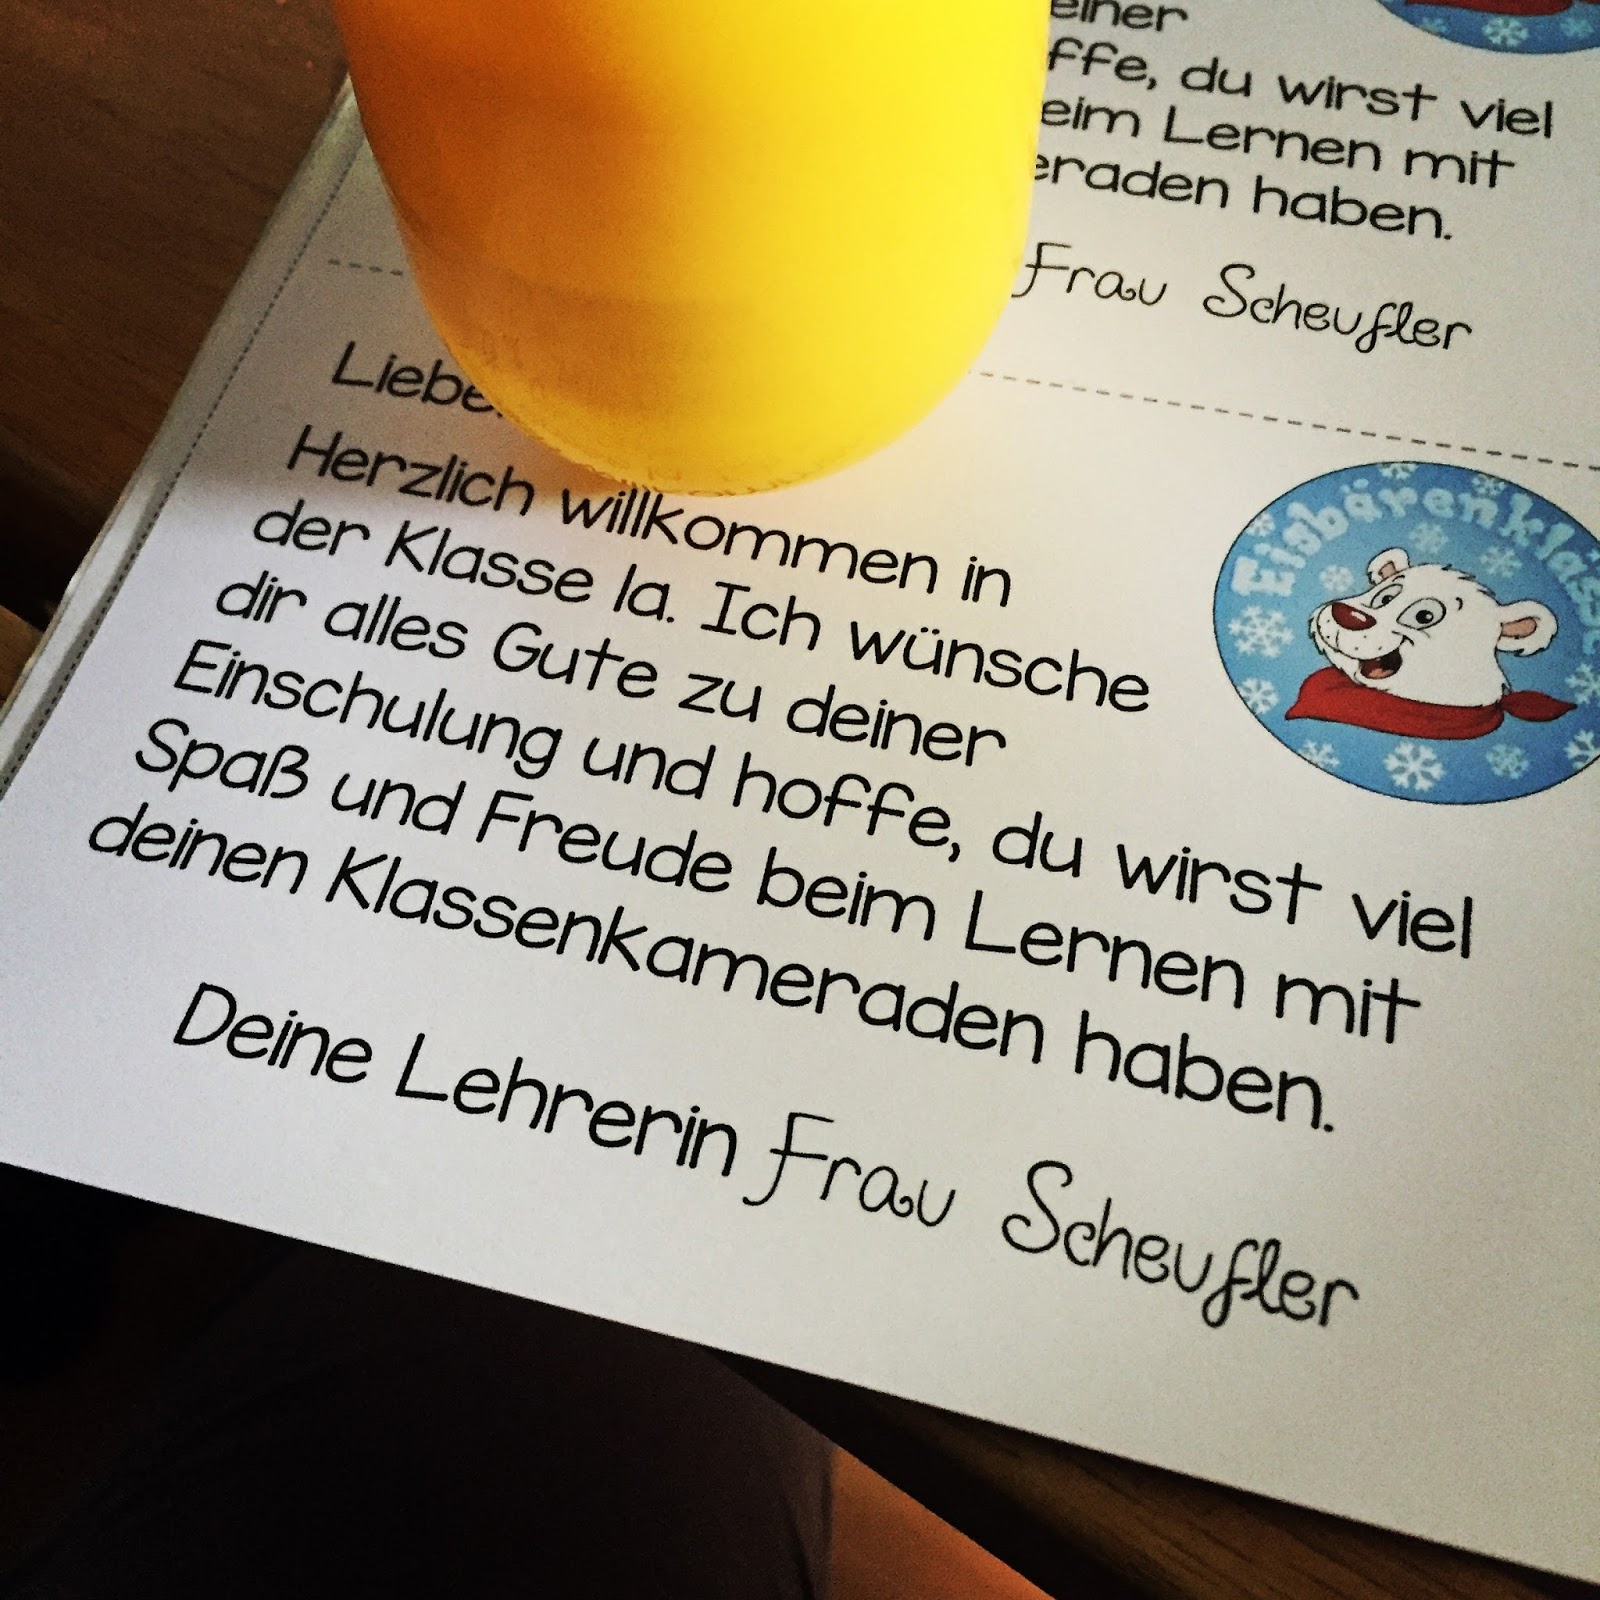 einer
hoffe, du wirst viel
beim Lernen mit
haben.
Frau Scheufler
Herzlich willkommen in
der Klasse 1a. Ich wünsche
dir alles Gute zu deiner
Einschulung und hoffe, du wirst viel
Spaß und Freude beim Lernen mit
deinen Klassenkameraden haben.
Deine Lehrerin Frau Scheufler
Eisbärenklasse